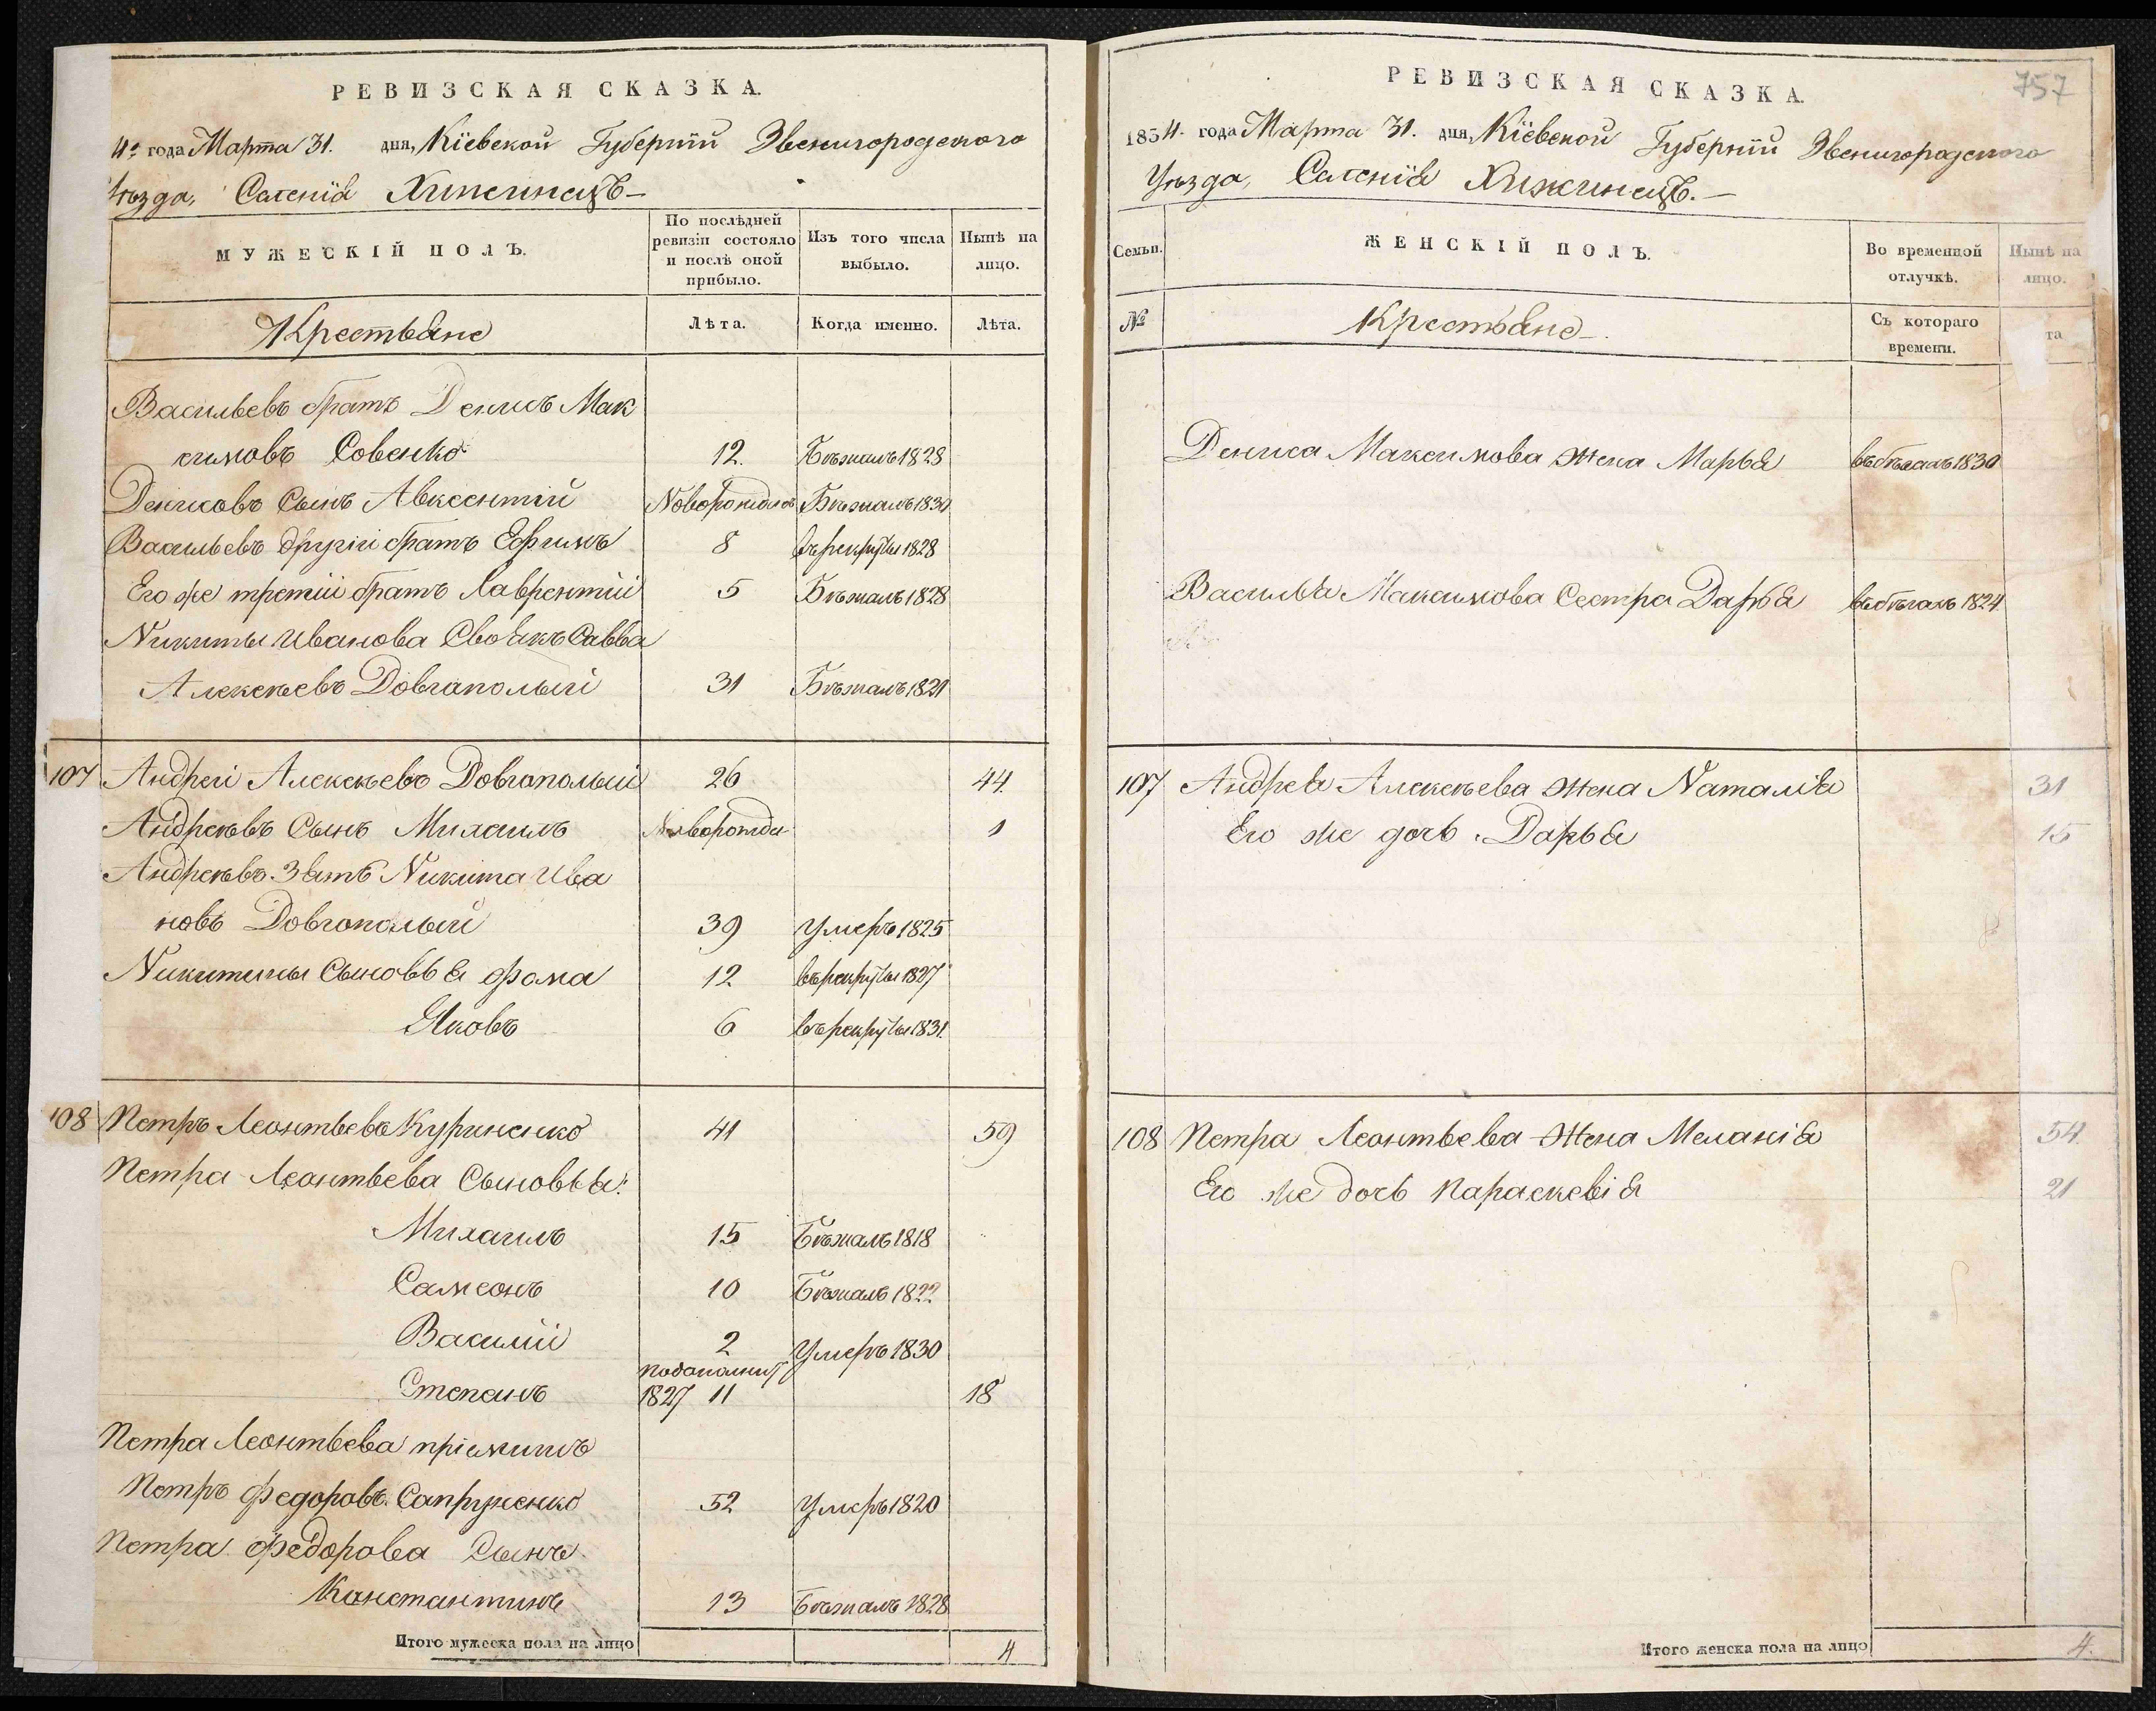 РЕВИЗСКАЯ СКАЗКА.
4го года Марта 31. дня, Кіевской Губерніи Звенигородского
Уѣзда, Селенія Хижинецъ —
МУЖЕСКІЙ ПОЛЪ.
По послѣдней ревизіи состояло и послѣ оной прибыло.
Изъ того числа выбыло.
Нынѣ на лицо.
Крестьяне
Лѣта.
Когда именно.
Лѣта.
Васильевъ братъ Денисъ Мак
симовъ Совенко 12. Бѣжалъ 1828
Денисовъ Сынъ Авксентій Новорожденъ Бѣжалъ 1830
Васильевъ другій братъ Ефимъ 8 въ рекруты 1828
Его же третій братъ Лаврентій 5 Бѣжалъ 1828
Никиты Иванова Своякъ Савва
Алексѣевъ Довгополый 31 Бѣжалъ 1821
107 Андрей Алексѣевъ Довгополый 26 44.
Андреевъ Сынъ Михаилъ Новорожден 1
Андреевъ Зять Никита Ива
новъ Довгополый 39 Умеръ 1825
Никитины Сыновья Фома 12 въ рекруты 1827
Яковъ 6 въ рекруты 1831.
108 Петръ Леонтьевъ Куриненко 41 59
Петра Леонтьева Сыновья:
Михаилъ 15 Бѣжалъ 1818
Самсонъ 10 Бѣжалъ 1822
Василій 2 Умеръ 1830
Степанъ 1827 11 18
Петра Леонтьева пріемишъ
Петръ Федоровъ Сапруженко 52 Умеръ 1820
Петра Федорова Сынъ
Константинъ 13 Бѣжалъ 1828
Итого мужеска пола на лицо 4
757
РЕВИЗСКАЯ СКАЗКА.
1834. года Марта 31. дня, Кіевской Губерніи Звенигородского
Уѣзда, Селенія Хижинецъ. —
Семьи.
ЖЕНСКІЙ ПОЛЪ.
Во временной отлучкѣ.
Нынѣ на лицо.
№
Крестьяне —.
Съ котораго времени.
та
Дениса Максимова жена Марья въ бѣгахъ 1830
Василья Максимова Сестра Дарья въ бѣгахъ 1824.
107 Андрея Алексѣева жена Наталія 31
Его же дочь Дарья 15
108 Петра Леонтьева жена Меланія 54.
Его же дочь Параскевія 21
Итого женска пола на лицо 4.